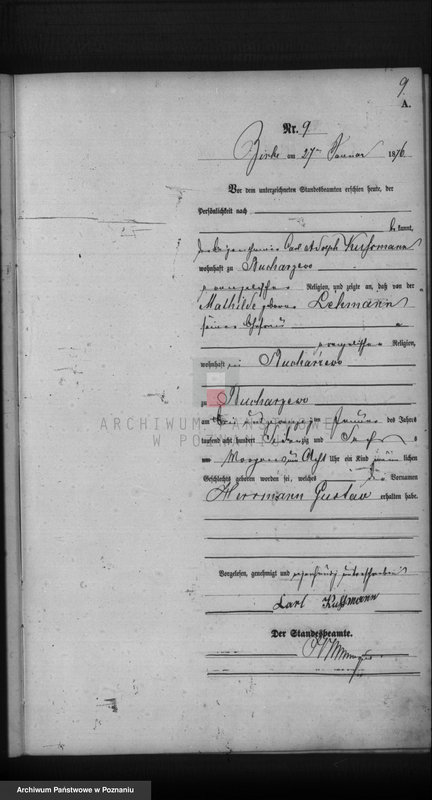 9.
A.
Nr. 9
Zirke am 27ten Januar 1876
Vor dem unterzeichneten Standesbeamten erschien heute, der
Persönlichkeit nach
be kannt,
Carl Adolph Kussmann
wohnhaft zu Kucharzewo
evangelischer Religion, und zeigte an, daß von der
Mathilde geborne Lehmann
seiner Ehefrau
evangelischer Religion,
wohnhaft bei Kucharzewo
zu Kucharzewo
am Januar des Jahres
tausend acht hundert Siebenzig und Sechs
Morgens um Acht Uhr ein Kind männ lichen
Geschlechts geboren worden sei, welches die Vornamen
Herrmann Gustav erhalten habe.
ARCHIWUM PAŃSTWOWE
W POZNANIU
Vorgelesen, genehmigt und eigenhändig unterschrieben
Carl Kussmann
Der Standesbeamte.
Archiwum Państwowe w Poznaniu